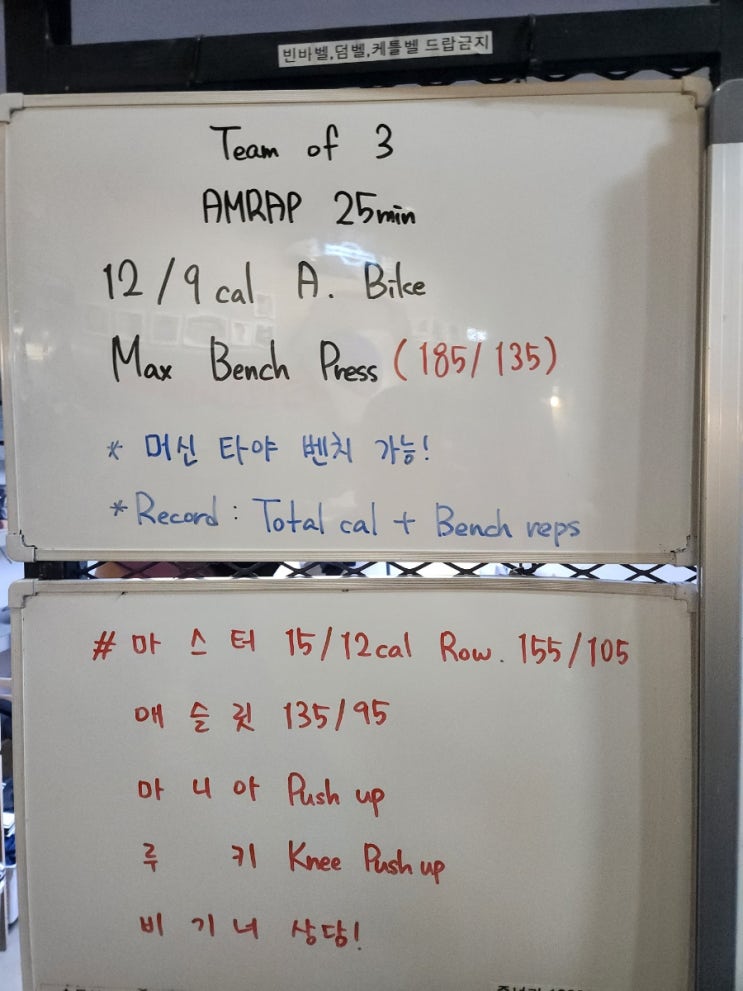 빈바벨,덤벨,케틀벨 드랍금지
Team of 3
AMRAP 25min
12/9 cal A. Bike
Max Bench Press (185/135)
* 머신 타야 벤치 가능!
* Record : Total cal + Bench reps
# 마 스 터 15/12cal Row. 155/105
애 슬 릿 135/95
마 니 아 Push up
루 키 Knee Push up
비 기 너 상담!